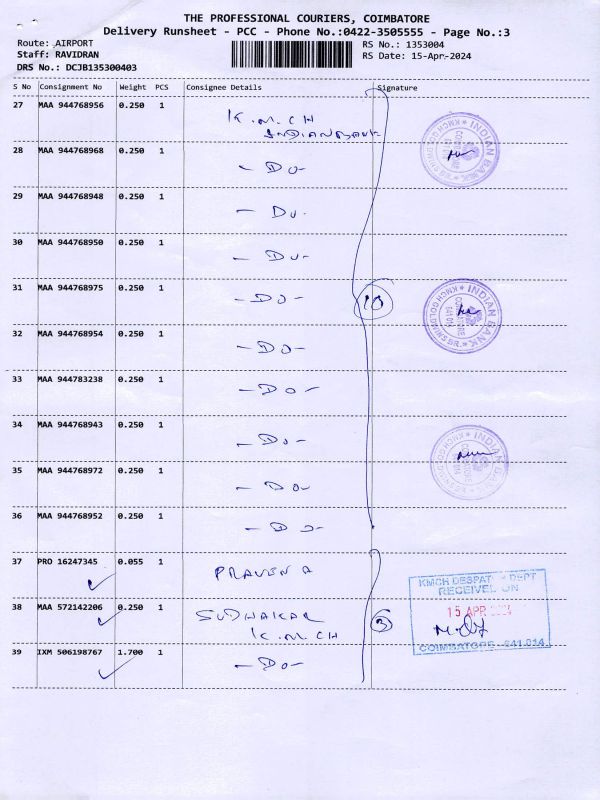 THE PROFESSIONAL COURIERS, COIMBATORE
Delivery Runsheet - PCC - Phone No.:0422-3505555 - Page No.:3
Route: AIRPORT
RS No.: 1353004
Staff: RAVIDRAN
RS Date: 15-Apr-2024
DRS No.: DCJB135300403
S No Consignment No Weight PCS Consignee Details Signature
27 MAA 944768956 0.250 1 K.M.CH
INDIANBANK
28 MAA 944768968 0.250 1 - DO-
29 MAA 944768948 0.250 1 - DO-
30 MAA 944768950 0.250 1 - DO-
31 MAA 944768975 0.250 1 - DO-
10
32 MAA 944768954 0.250 1 - DO-
33 MAA 944783238 0.250 1 - DO-
34 MAA 944768943 0.250 1 - DO-
35 MAA 944768972 0.250 1 - DO-
36 MAA 944768952 0.250 1 - DO-
37 PRO 16247345 0.055 1 PRAVEN A
38 MAA 572142206 0.250 1 SUDHAKAR
K.M.CH
3
39 IXM 506198767 1.700 1 - DO-
INDIAN BANK
INDIAN BANK
INDIAN BANK
KMCH DESPATCH DEPT
RECEIVED ON
15 APR 2024
COIMBATORE - 641 014